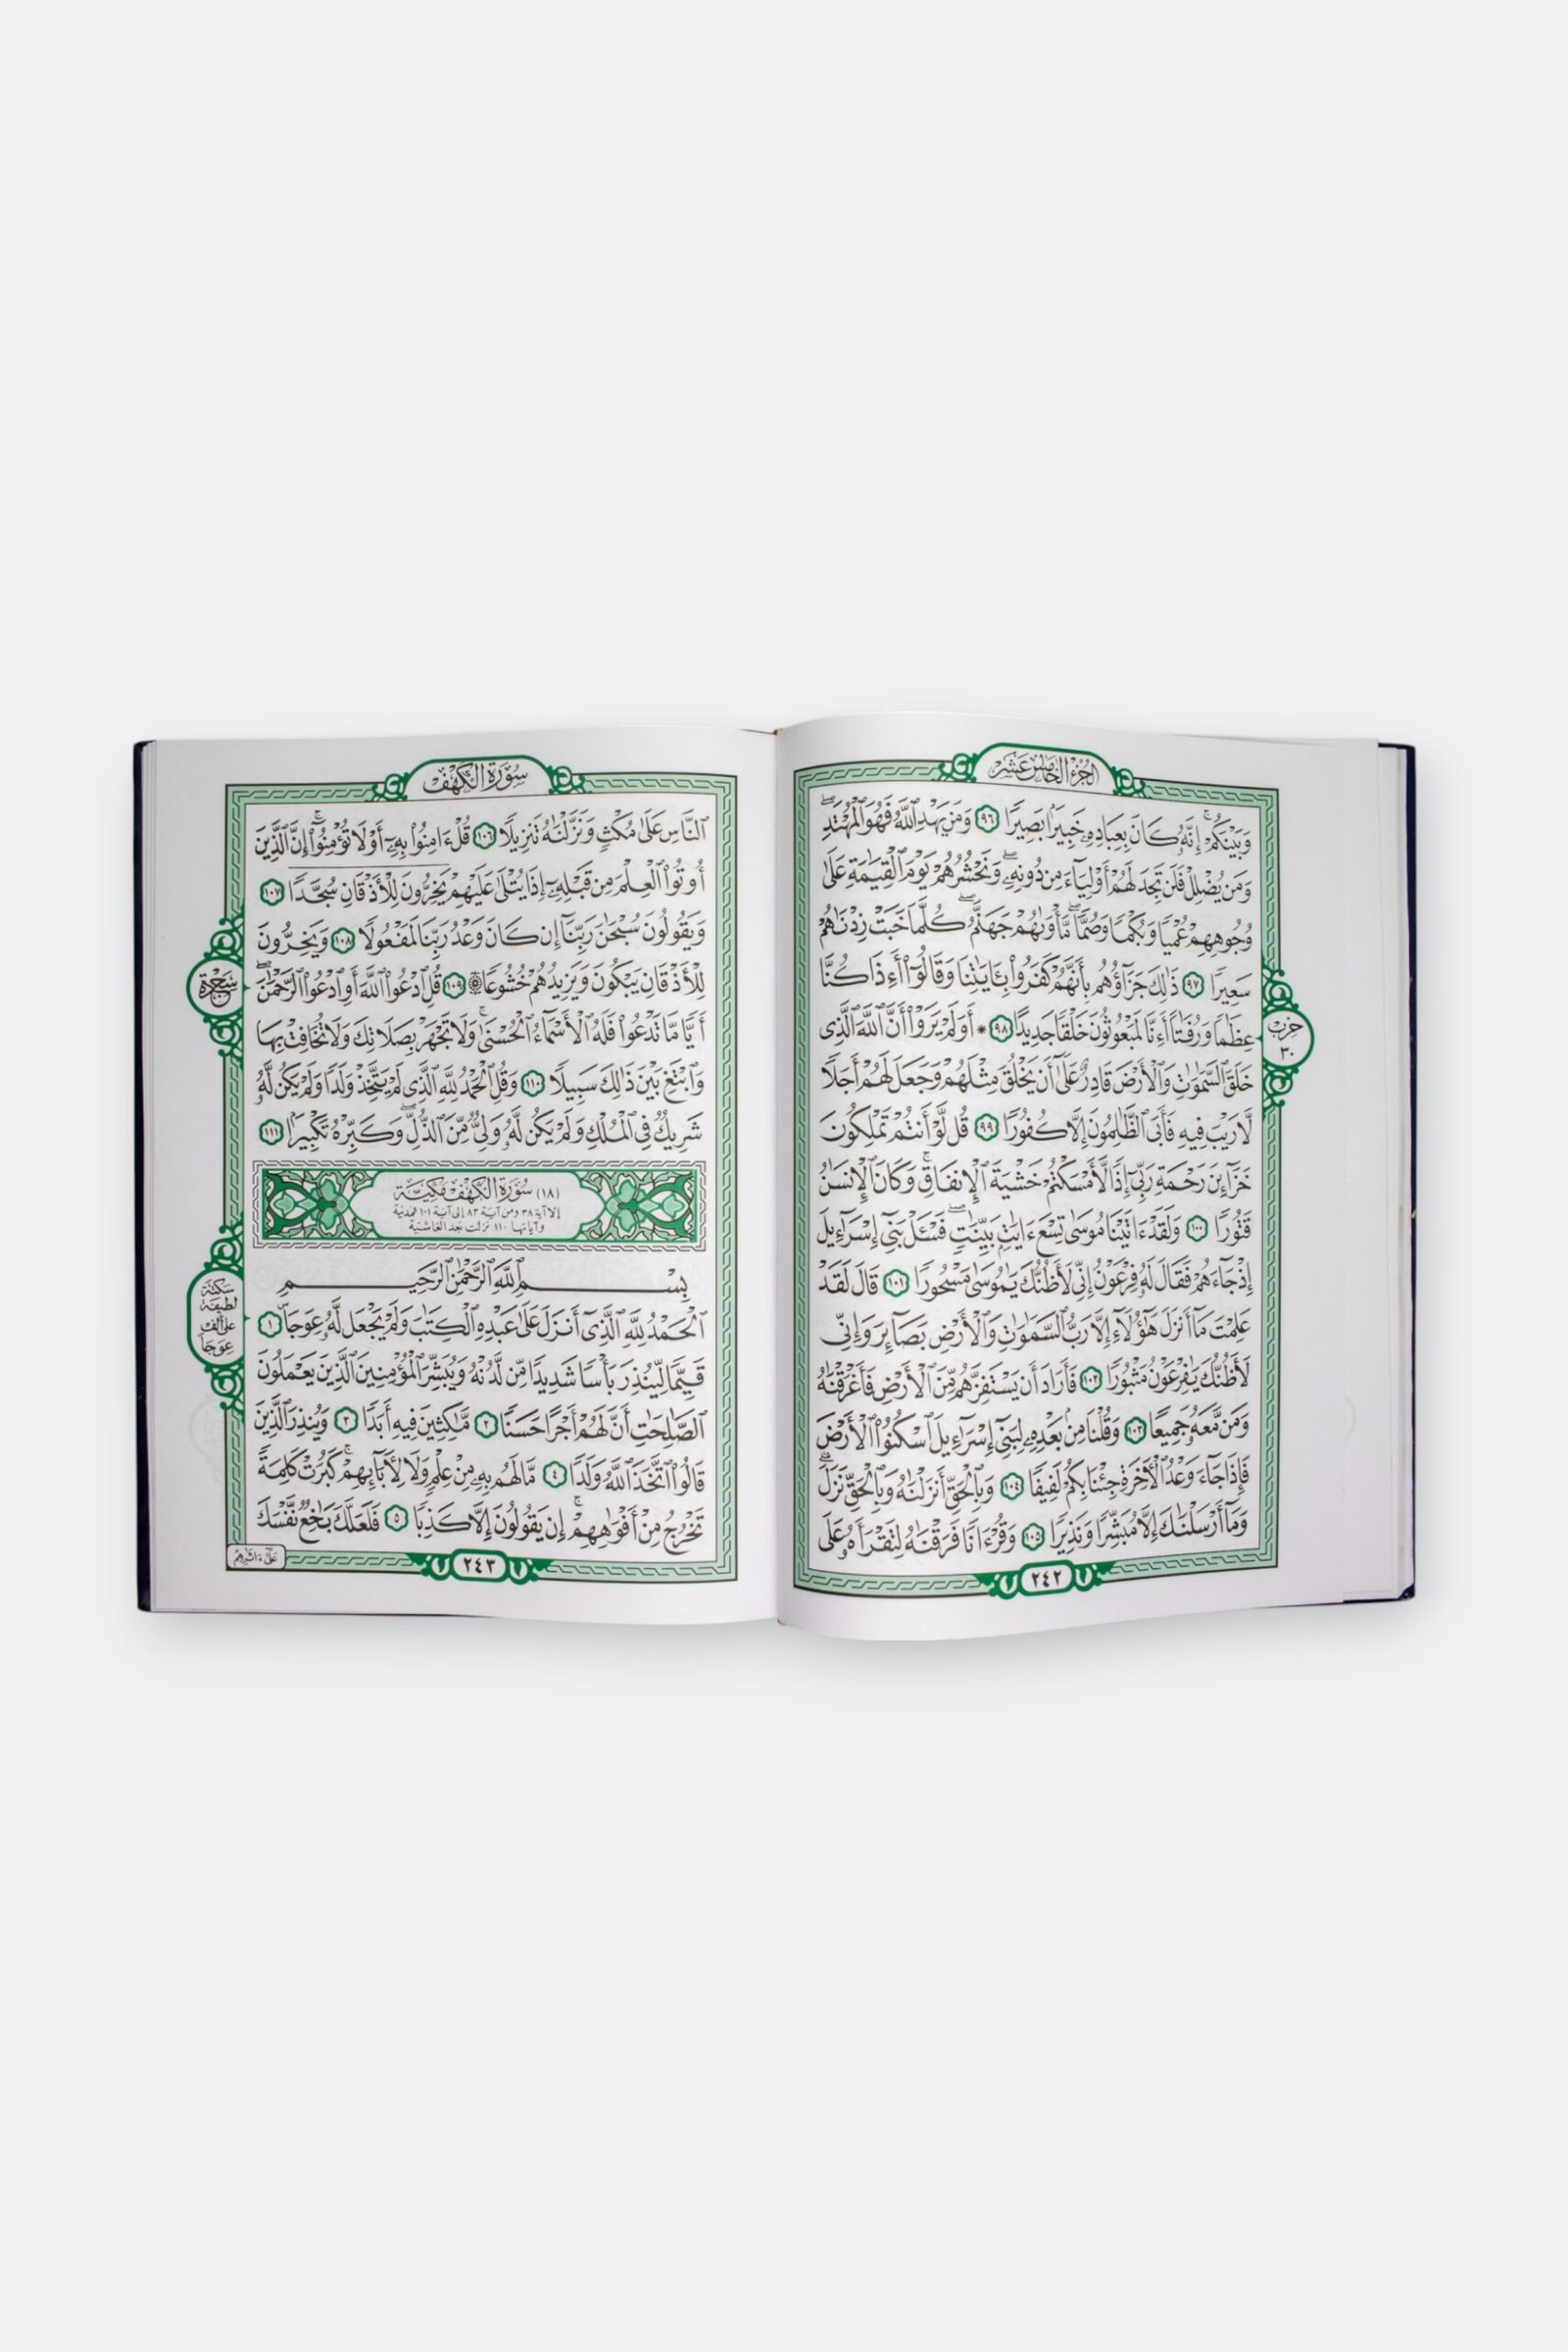 الجزء الخامس عشر
وَبَيْنَكُمْ ۚ إِنَّهُۥ كَانَ بِعِبَادِهِۦ خَبِيرًۢا بَصِيرًا ٩٦ وَمَن يَهْدِ ٱللَّهُ فَهُوَ ٱلْمُهْتَدِ ۖ
وَمَن يُضْلِلْ فَلَن تَجِدَ لَهُمْ أَوْلِيَآءَ مِن دُونِهِۦ ۖ وَنَحْشُرُهُمْ يَوْمَ ٱلْقِيَٰمَةِ عَلَىٰ
وُجُوهِهِمْ عُمْيًا وَبُكْمًا وَصُمًّا ۖ مَّأْوَىٰهُمْ جَهَنَّمُ ۖ كُلَّمَا خَبَتْ زِدْنَٰهُمْ
سَعِيرًا ٩٧ ذَٰلِكَ جَزَآؤُهُم بِأَنَّهُمْ كَفَرُوا۟ بِـَٔايَٰتِنَا وَقَالُوٓا۟ أَءِذَا كُنَّا
عِظَٰمًا وَرُفَٰتًا أَءِنَّا لَمَبْعُوثُونَ خَلْقًا جَدِيدًا ٩٨ * أَوَلَمْ يَرَوْا۟ أَنَّ ٱللَّهَ ٱلَّذِى
خَلَقَ ٱلسَّمَٰوَٰتِ وَٱلْأَرْضَ قَادِرٌ عَلَىٰٓ أَن يَخْلُقَ مِثْلَهُمْ وَجَعَلَ لَهُمْ أَجَلًا
لَّا رَيْبَ فِيهِ فَأَبَى ٱلظَّٰلِمُونَ إِلَّا كُفُورًا ٩٩ قُل لَّوْ أَنتُمْ تَمْلِكُونَ
خَزَآئِنَ رَحْمَةِ رَبِّىٓ إِذًا لَّأَمْسَكْتُمْ خَشْيَةَ ٱلْإِنفَاقِ ۚ وَكَانَ ٱلْإِنسَٰنُ
قَتُورًا ١٠٠ وَلَقَدْ ءَاتَيْنَا مُوسَىٰ تِسْعَ ءَايَٰتٍۭ بَيِّنَٰتٍ ۖ فَسْـَٔلْ بَنِىٓ إِسْرَٰٓءِيلَ
إِذْ جَآءَهُمْ فَقَالَ لَهُۥ فِرْعَوْنُ إِنِّى لَأَظُنُّكَ يَٰمُوسَىٰ مَسْحُورًا ١٠١ قَالَ لَقَدْ
عَلِمْتَ مَآ أَنزَلَ هَٰٓؤُلَآءِ إِلَّا رَبُّ ٱلسَّمَٰوَٰتِ وَٱلْأَرْضِ بَصَآئِرَ وَإِنِّى
لَأَظُنُّكَ يَٰفِرْعَوْنُ مَثْبُورًا ١٠٢ فَأَرَادَ أَن يَسْتَفِزَّهُم مِّنَ ٱلْأَرْضِ فَأَغْرَقْنَٰهُ
وَمَن مَّعَهُۥ جَمِيعًا ١٠٣ وَقُلْنَا مِنۢ بَعْدِهِۦ لِبَنِىٓ إِسْرَٰٓءِيلَ ٱسْكُنُوا۟ ٱلْأَرْضَ
فَإِذَا جَآءَ وَعْدُ ٱلْءَاخِرَةِ جِئْنَا بِكُمْ لَفِيفًا ١٠٤ وَبِٱلْحَقِّ أَنزَلْنَٰهُ وَبِٱلْحَقِّ نَزَلَ ۗ
وَمَآ أَرْسَلْنَٰكَ إِلَّا مُبَشِّرًا وَنَذِيرًا ١٠٥ وَقُرْءَانًا فَرَقْنَٰهُ لِتَقْرَأَهُۥ عَلَى
٢٤٢
حزب
٣٠
سورة الكهف
ٱلنَّاسِ عَلَىٰ مُكْثٍ وَنَزَّلْنَٰهُ تَنزِيلًا ١٠٦ قُلْ ءَامِنُوا۟ بِهِۦٓ أَوْ لَا تُؤْمِنُوٓا۟ ۚ إِنَّ ٱلَّذِينَ
أُوتُوا۟ ٱلْعِلْمَ مِن قَبْلِهِۦٓ إِذَا يُتْلَىٰ عَلَيْهِمْ يَخِرُّونَ لِلْأَذْقَانِ سُجَّدًا ١٠٧
وَيَقُولُونَ سُبْحَٰنَ رَبِّنَآ إِن كَانَ وَعْدُ رَبِّنَا لَمَفْعُولًا ١٠٨ وَيَخِرُّونَ
لِلْأَذْقَانِ يَبْكُونَ وَيَزِيدُهُمْ خُشُوعًا ۩ ١٠٩ قُلِ ٱدْعُوا۟ ٱللَّهَ أَوِ ٱدْعُوا۟ ٱلرَّحْمَٰنَ ۖ
أَيًّا مَّا تَدْعُوا۟ فَلَهُ ٱلْأَسْمَآءُ ٱلْحُسْنَىٰ ۚ وَلَا تَجْهَرْ بِصَلَاتِكَ وَلَا تُخَافِتْ بِهَا
وَٱبْتَغِ بَيْنَ ذَٰلِكَ سَبِيلًا ١١٠ وَقُلِ ٱلْحَمْدُ لِلَّهِ ٱلَّذِى لَمْ يَتَّخِذْ وَلَدًا وَلَمْ يَكُن لَّهُۥ
شَرِيكٌ فِى ٱلْمُلْكِ وَلَمْ يَكُن لَّهُۥ وَلِىٌّ مِّنَ ٱلذُّلِّ ۖ وَكَبِّرْهُ تَكْبِيرًۢا ١١١
(١٨) سورة الكهف مكية
إلا آية ٣٨ ومن آية ٨٣ إلى آية ١٠١ فمدنية
وآياتها ١١٠ نزلت بعد الغاشية
بِسْمِ ٱللَّهِ ٱلرَّحْمَٰنِ ٱلرَّحِيمِ
ٱلْحَمْدُ لِلَّهِ ٱلَّذِىٓ أَنزَلَ عَلَىٰ عَبْدِهِ ٱلْكِتَٰبَ وَلَمْ يَجْعَل لَّهُۥ عِوَجَاۜ ١
قَيِّمًا لِّيُنذِرَ بَأْسًا شَدِيدًا مِّن لَّدُنْهُ وَيُبَشِّرَ ٱلْمُؤْمِنِينَ ٱلَّذِينَ يَعْمَلُونَ
ٱلصَّٰلِحَٰتِ أَنَّ لَهُمْ أَجْرًا حَسَنًا ٢ مَّٰكِثِينَ فِيهِ أَبَدًا ٣ وَيُنذِرَ ٱلَّذِينَ
قَالُوا۟ ٱتَّخَذَ ٱللَّهُ وَلَدًا ٤ مَّا لَهُم بِهِۦ مِنْ عِلْمٍ وَلَا لِءَابَآئِهِمْ ۚ كَبُرَتْ كَلِمَةً
تَخْرُجُ مِنْ أَفْوَٰهِهِمْ ۚ إِن يَقُولُونَ إِلَّا كَذِبًا ٥ فَلَعَلَّكَ بَٰخِعٌ نَّفْسَكَ
عَلَىٰٓ ءَاثَٰرِهِمْ
٢٤٣
سجدة
سكتة
لطيفة
على ألف
عوجا